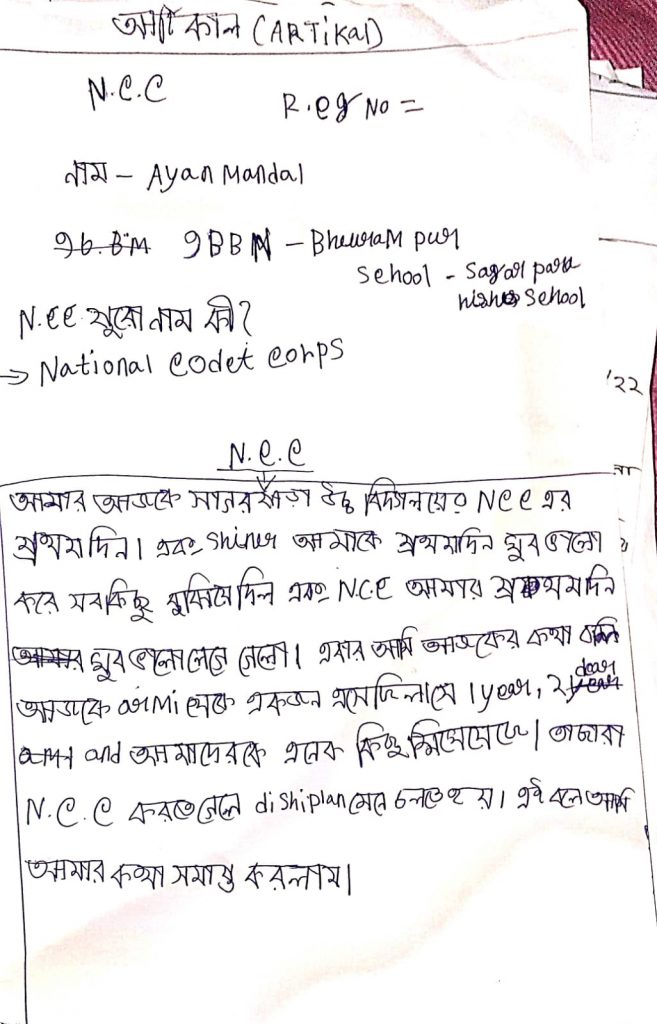 আর্টিকাল (ARTiKal)
N.C.C R.eg No =
নাম – Ayan Mandal
9BBN – BhauraM pur
School - Sagar para
high School
N.CC. পুরো নাম কী?
→ National Codet Corps
'22
N.C.C
না
আমার আজকে সাগরপাড়া উচ্চ বিদ্যালয়ের NCC এর
প্রথমদিন। এবং Shiner আমাকে প্রথমদিন খুব ভালো
করে সবকিছু বুঝিয়ে দিল এবং N.C.C আমার প্রথমদিন
খুব ভালো লেগে গেলো। এবার আমি আজকের কথা বলি
আজকে arMi থেকে একজন এসেছিলাসে 1 year, 2 dear
and আমাদেরকে এনেক কিছু
N.C.C করতে গেলে diShiplan মেনে চলতে হয়। এই বলে আমি
আমার কথা সমাপ্ত করলাম।